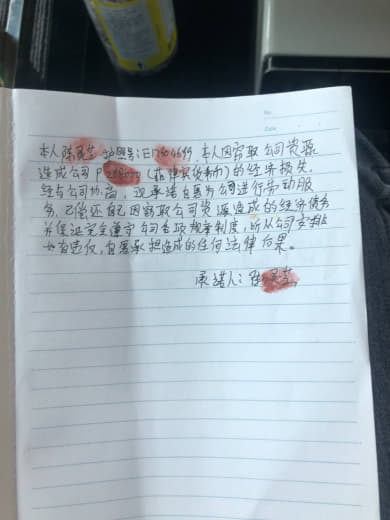 No.
Date.
本人陈 护照号:E 本人因窃取公司资源
造成公司P (菲律宾货币) 的经济损失.
经与公司协商, 现承诺自愿为公司进行劳动服
务, 已偿还自己因窃取公司资源造成的经济债务
并保证完全遵守公司各项规章制度, 听从公司安排
如有违反, 自愿承担造成的任何法律后果。
承诺人: 陈